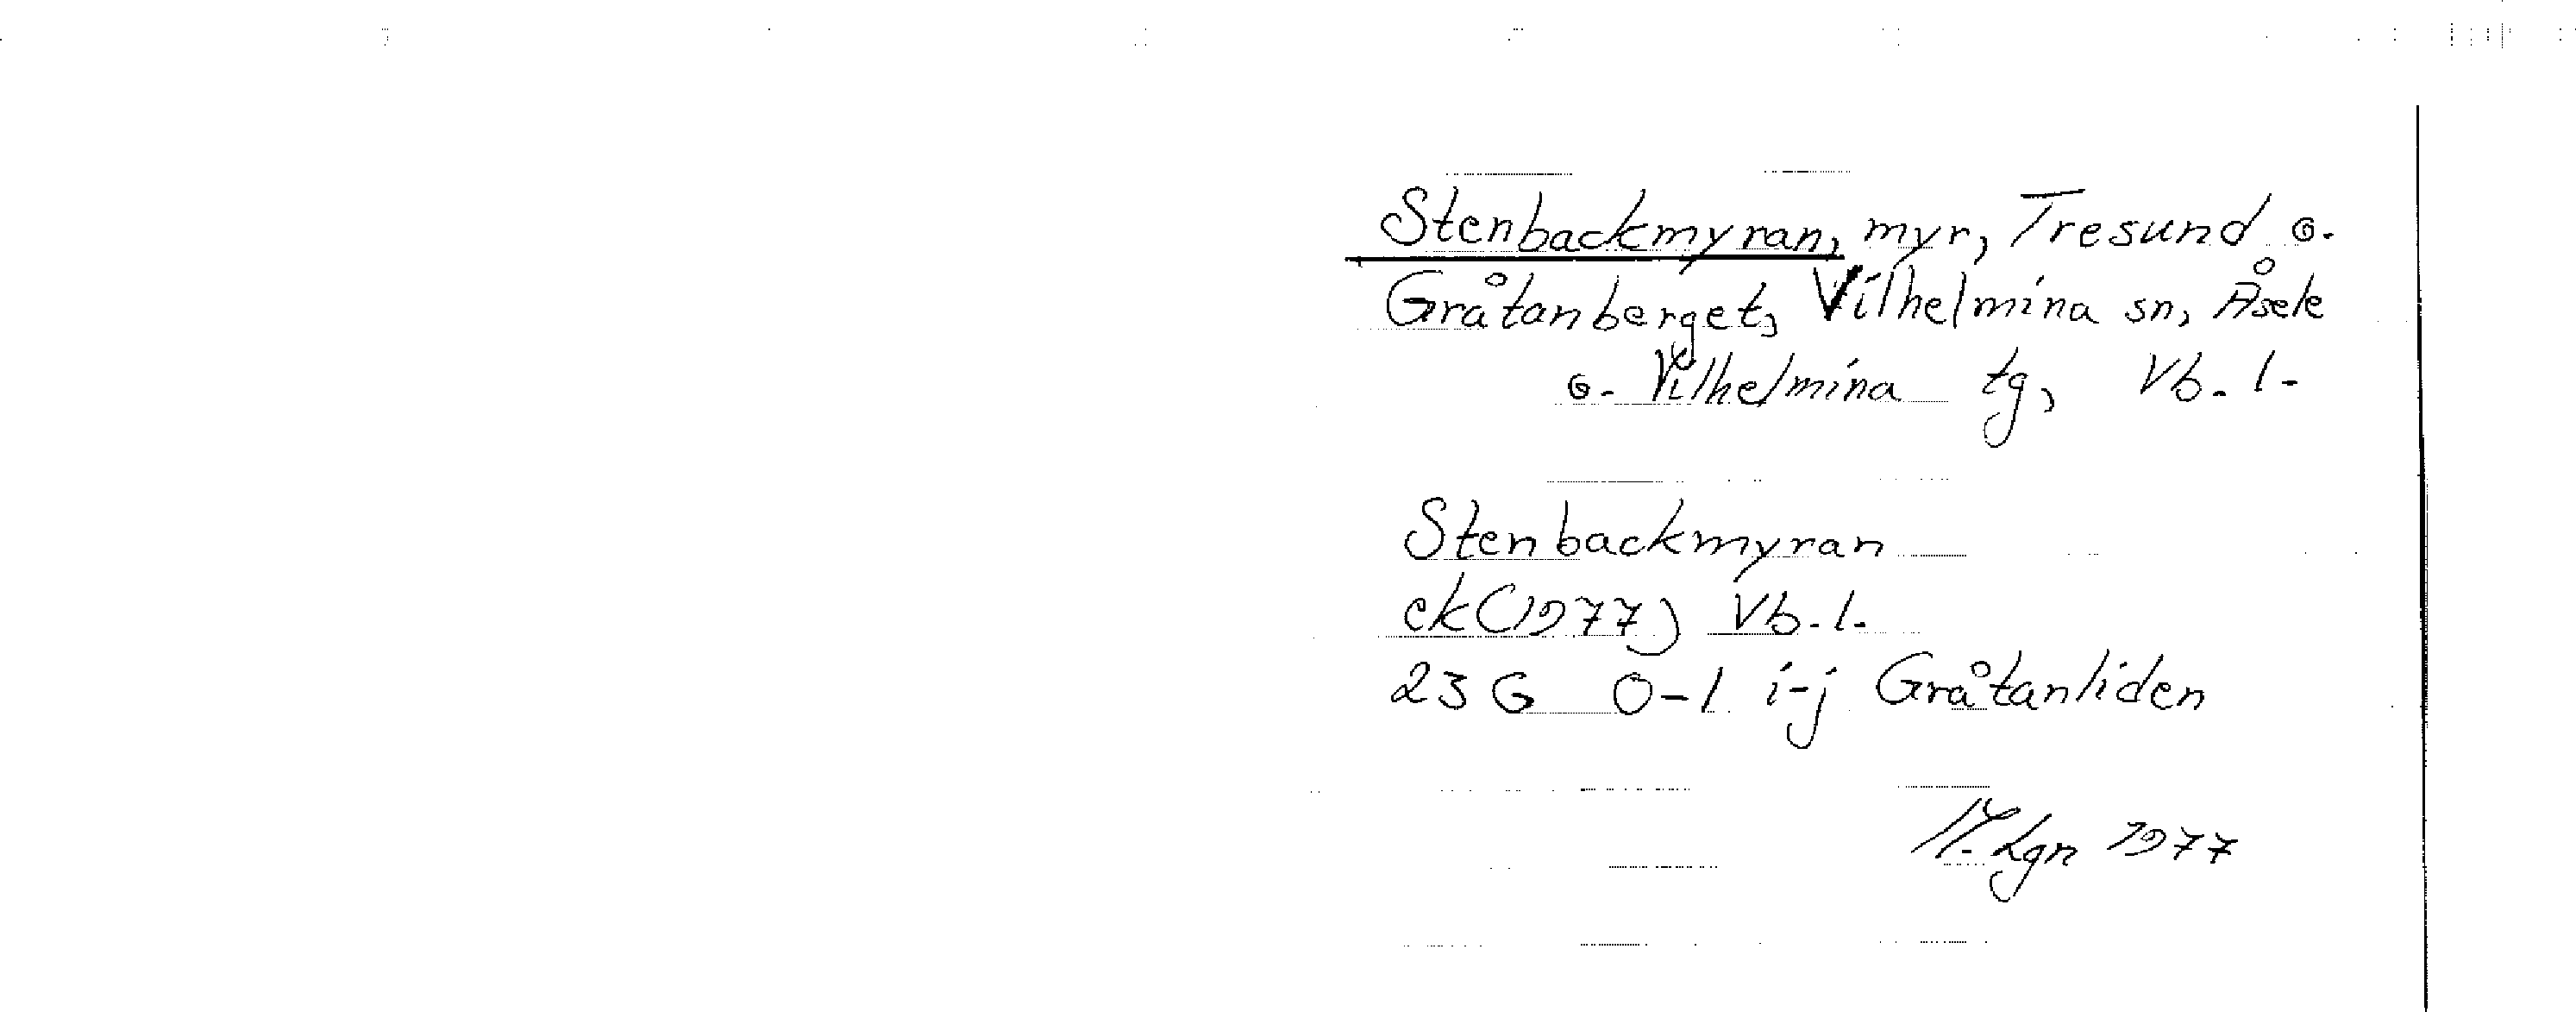 Stenbackmyran, myr, Tresund o.
Gråtanberget, Vilhelmina sn, Åsele
o. Vilhelmina tg, Vb. l.
Stenbackmyran
ek (1977) Vb. l.
23 G 0-1 i-j Gråtanliden
M. Lgn 1977